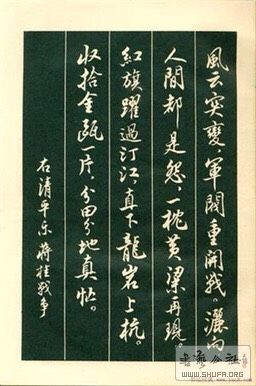 風云突變，軍閥重開戰。灑向
人間都是怨，一枕黄梁再現。
紅旗躍過汀江，直下龍岩上杭。
收拾金甌一片，分田分地真忙。
右清平乐蔣桂战争
書藝公社
WWW.SHUFA.ORG